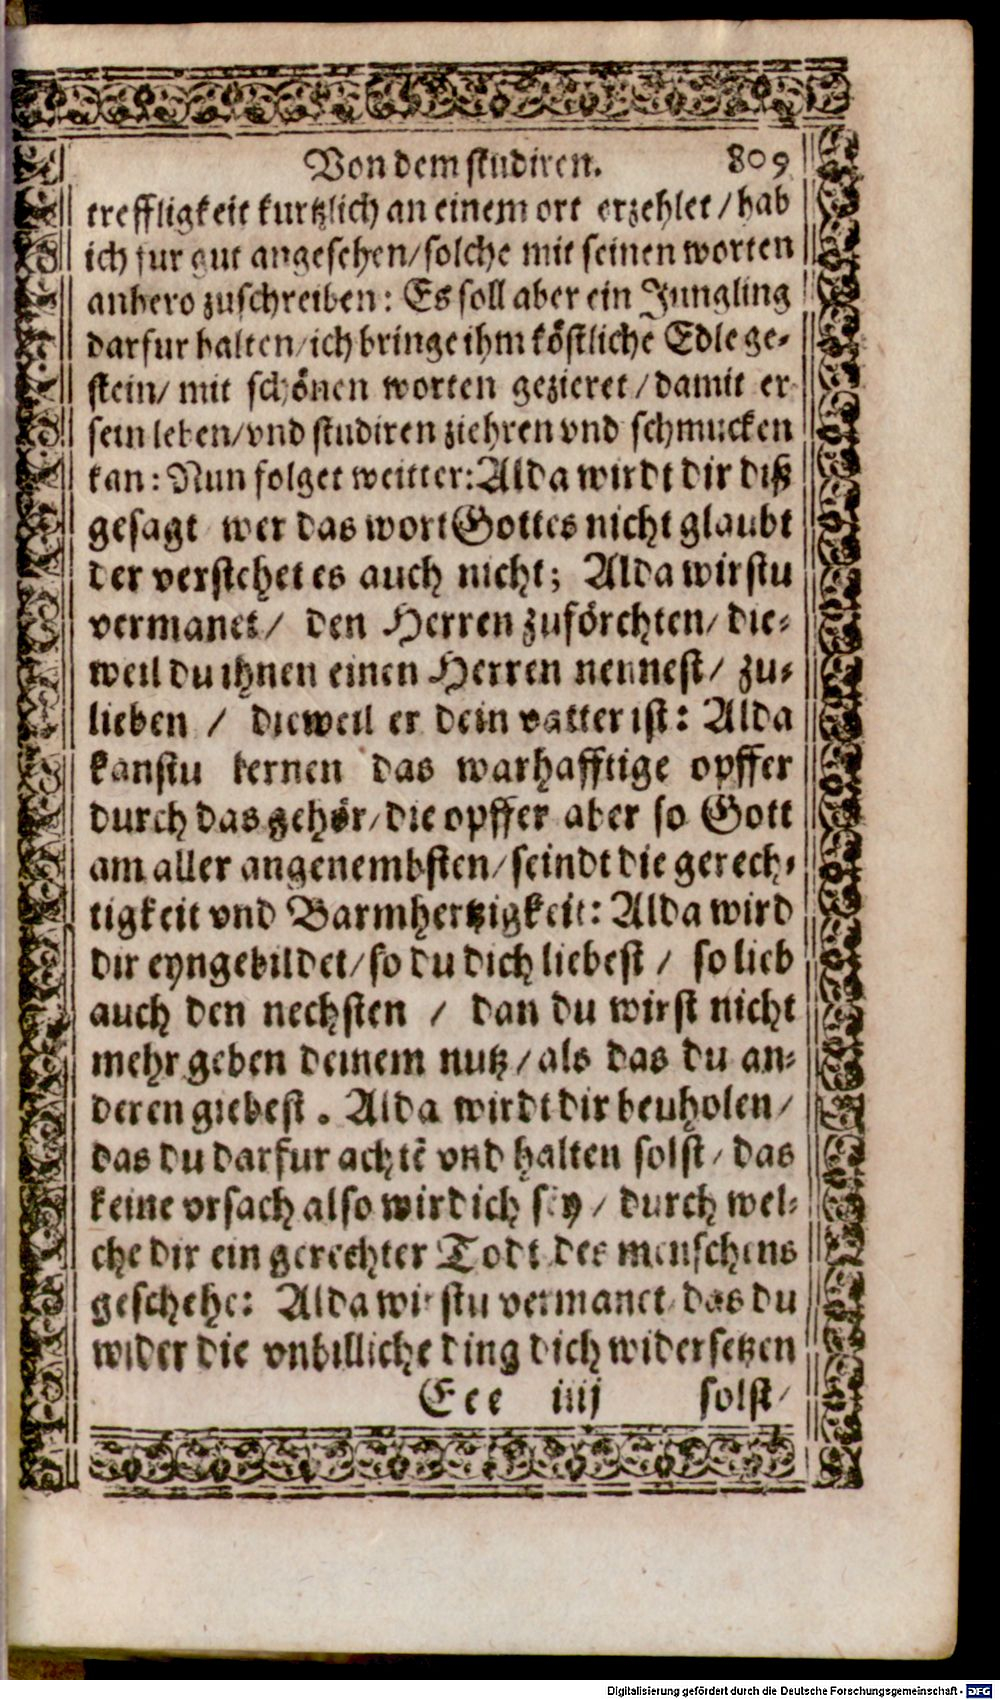 Von dem studiren. 809
treffligkeit kurtzlich an einem ort erzehlet / hab
ich fur gut angesehen/ solche mit seinen worten
anhero zuschreiben: Es soll aber ein Jungling
darfur halten/ ich bringe ihm köstliche Edle ge-
stein/ mit schönen worten gezieret / damit er
sein leben/ vnd studiren ziehren vnd schmucken
kan: Nun folget weitter: Alda wirdt dir diß
gesagt wer das wort Gottes nicht glaubt
der verstehet es auch nicht; Alda wirstu
vermanet/ den Herren zuförchten/ die-
weil du ihnen einen Herren nennest/ zu-
lieben / dieweil er dein vatter ist: Alda
kanstu lernen das warhafftige opffer
durch das gehör/ die opffer aber so Gott
am aller angenembsten/ seindt die gerech-
tigkeit vnd Barmhertzigkeit: Alda wird
dir eyngebildet/ so du dich liebest / so lieb
auch den nechsten / dan du wirst nicht
mehr geben deinem nutz / als das du an-
deren giebest . Alda wirdt dir beuholen/
das du darfur achtẽ vnd halten solst/ das
keine vrsach also wirdich sey / durch wel-
che dir ein gerechter Todt des menschens
geschehe: Alda wirstu vermanet/ das du
wider die vnbilliche ding dich widersetzen
Eee iiij solst/
Digitalisierung gefördert durch die Deutsche Forschungsgemeinschaft - DFG